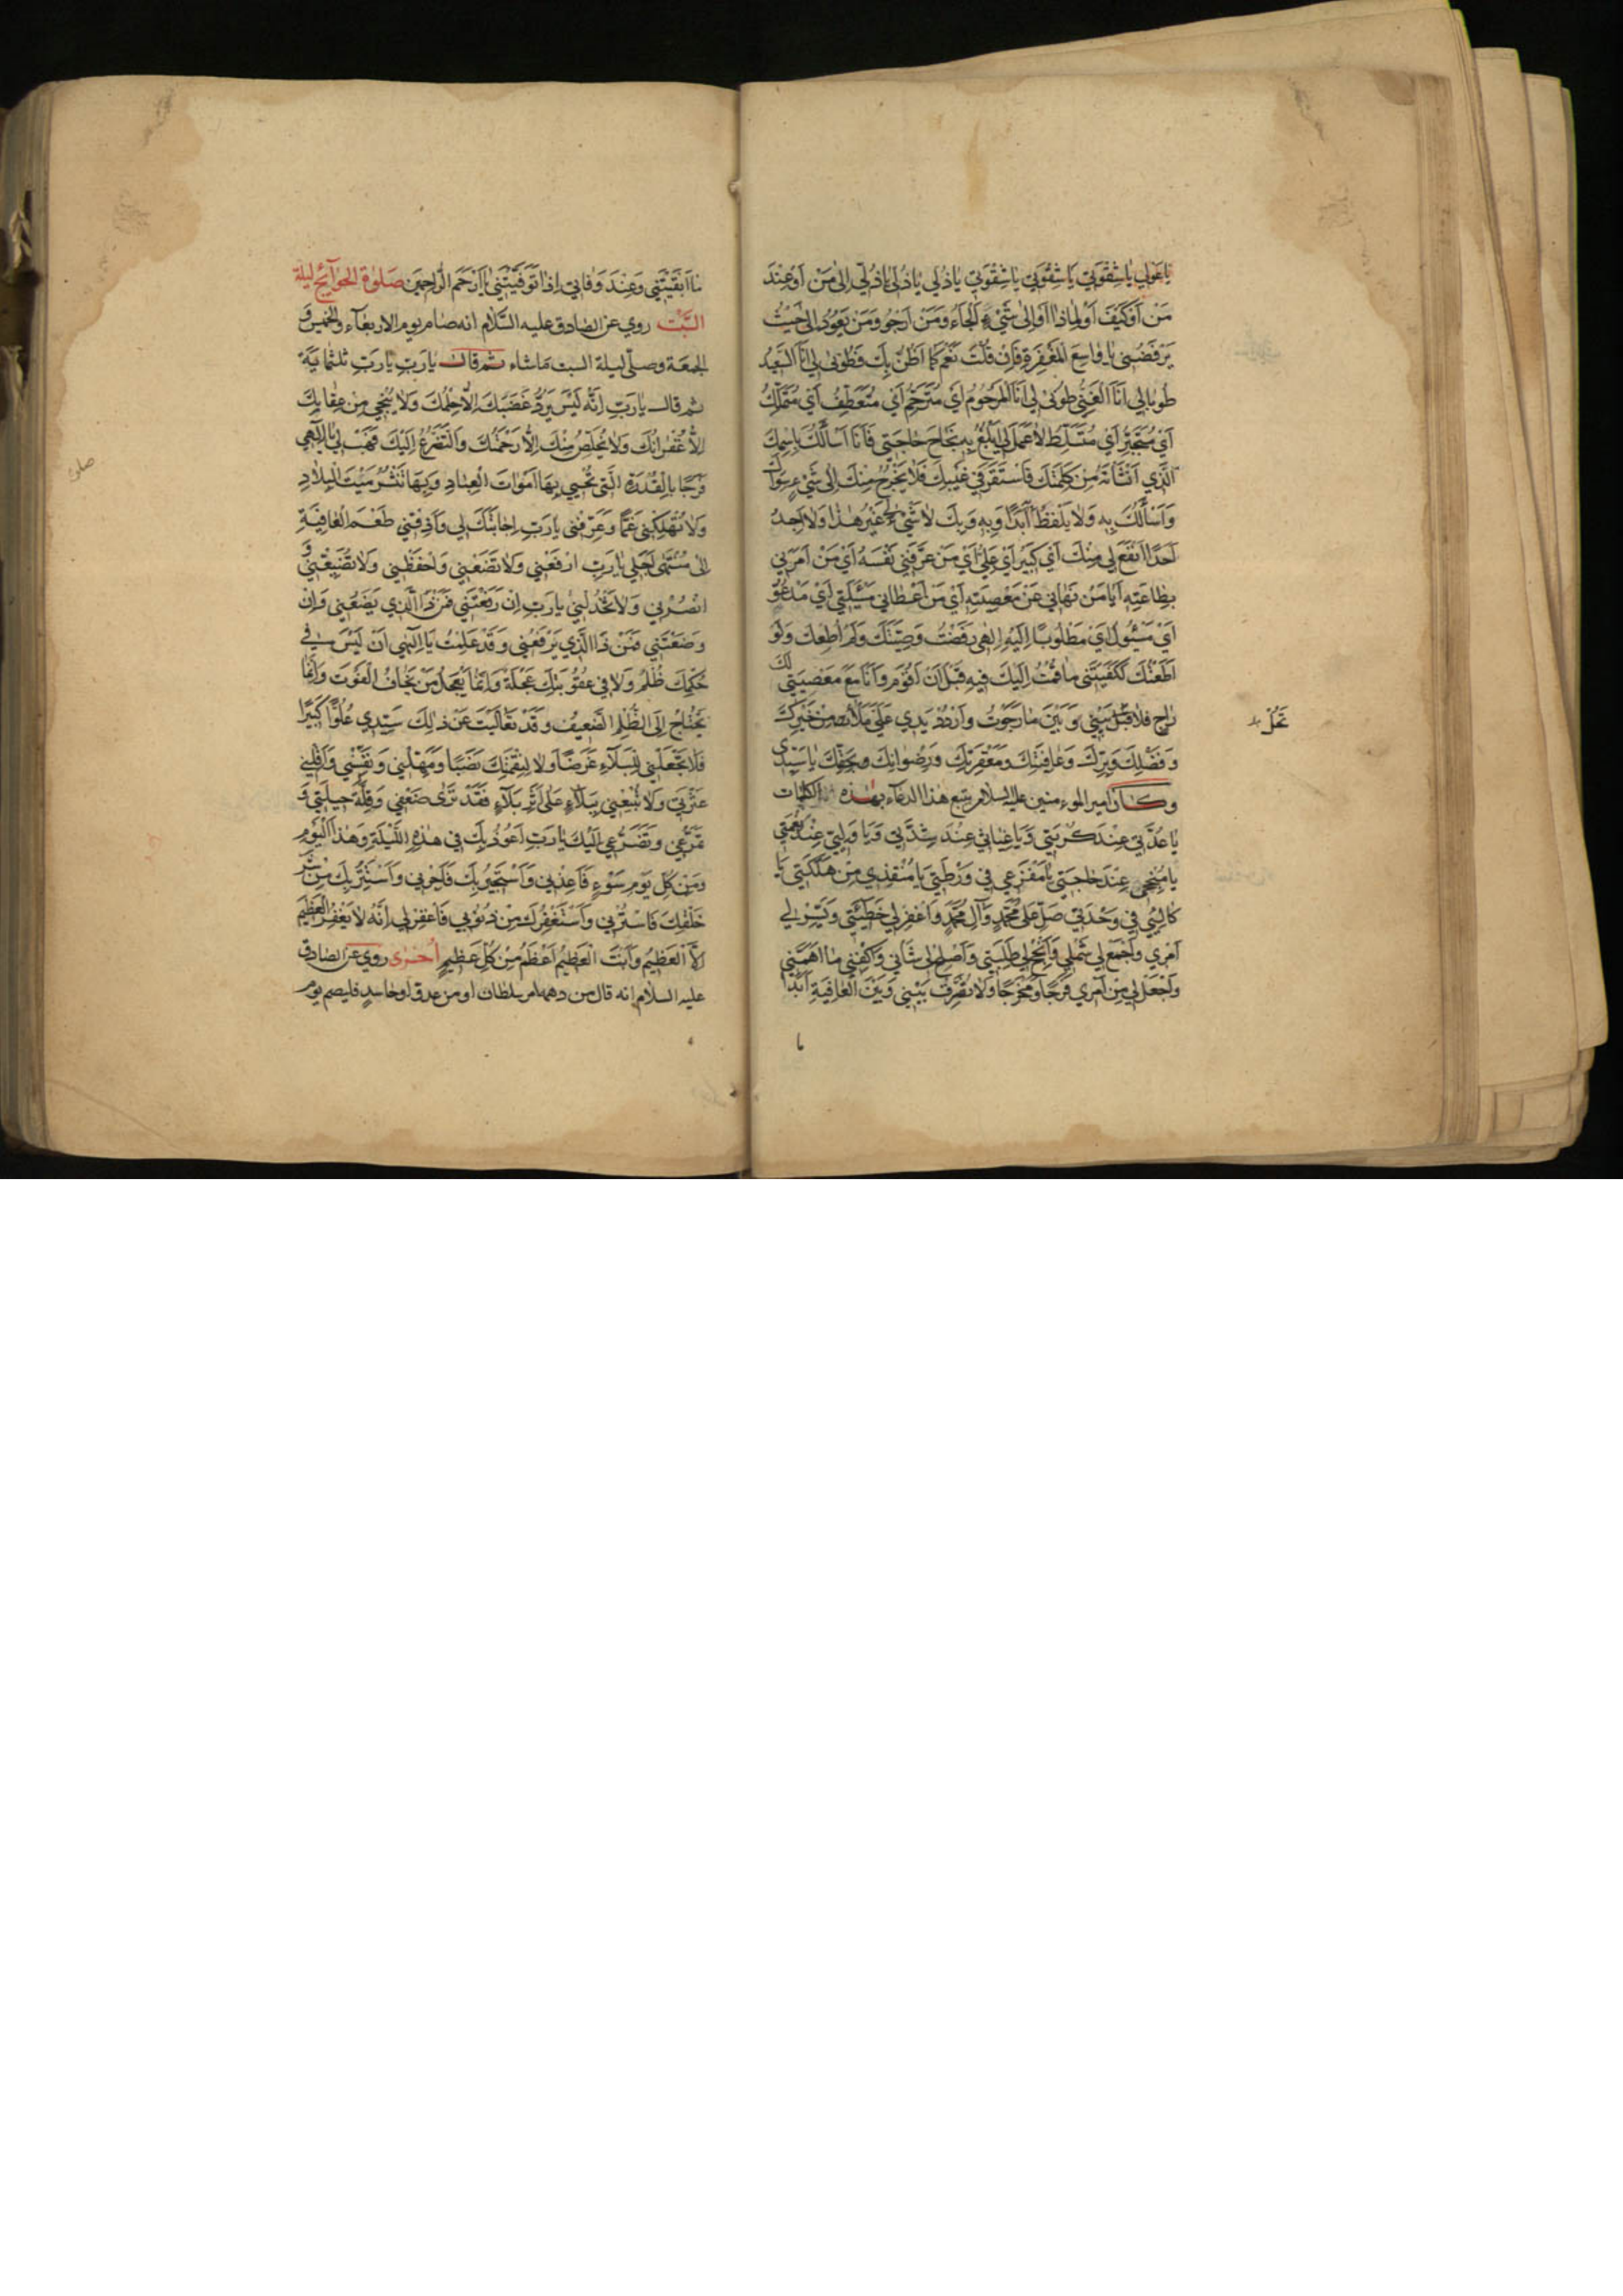 يا عولي يا شقوتي يا شقوتي يا شقوتي يا ذلي يا ذلي يا ذلي الى من او عند
من او كيف او لماذا او الى شيء الجاء ومن ارجو ومن يعود الي حيث
يرفضني يا واسع المغفرة فان قلت نعم كما اظن بك فطوبى لي انا السعيد
طوبا لي انا الغني طوبى لي انا المرحوم اي مترحم اي متعطف اي متملك
اي متجبر اي متسلط لا عمل لي ابلغ به نجاح حاجتي فانا اسالك باسمك
الذي انشاته من كلمتك فاستقر في غيبك فلا يخرج منك الى شيء سواك
واسألك به ولا يلفظ ابدا وبه وبك لا شيء لي غير هذا ولا اجد
احدا انفع لي منك اي كبير اي علي اي من عرفني نفسه اي من امرني
بطاعته ايا من نهاني عن معصيته اي من اعطاني مسئلتي اي مدعو
اي مسئول اي مطلوبا اليه الهي رفضت وصيتك ولم اطعك ولو
اطعتك لكفيتني ما قمت اليك فيه قبل ان اقوم وانا مع معصيتي لك
راج فلا تحل بيني وبين ما رجوت واردد يدي علي ملاى من خيرك
وفضلك وبرك وعافيتك ومغفرتك ورضوانك وبحقك يا سيدي
وكان امير المومنين عليه السلام يتبع هذا الدعاء بهذه الكلمات
يا عدتي عند كربتي ويا غياثي عند شدتي ويا وليي عند نعمتي
يا منجحي عند حاجتي يا مفزعي في ورطتي يا منقذي من هلكتي يا
كالئي في وحدتي صل على محمد وآل محمد واغفر لي خطيئتي ويسر لي
امري واجمع لي شملي وانجح لي طلبتي واصلح لي شاني واكفني ما اهمني
واجعل لي من امري فرجا ومخرجا ولا تفرق بيني وبين العافية ابدا
ما
تحل
ما ابقيتني وعند وفاتي اذا توفيتني يا ارحم الراحمين صلوة الحوائج ليلة
السبت روي عن الصادق عليه السلام انه صام يوم الاربعاء والخميس و
الجمعة وصلى ليلة السبت ما شاء ثم قال يا رب يا رب ثلثمائة
ثم قال يا رب انه ليس يرد غضبك الا حلمك ولا ينجي من عقابك
الا غفرانك ولا يخلص منك الا رحمتك والتضرع اليك فهب لي يا الهي
فرجا بالقدرة التي تحيي بها اموات العباد وبها تنشر ميت البلاد
ولا تهلكني غما وعرفني يا رب اجابتك لي واذقني طعم العافية
الى منتهى اجلي يا رب ارفعني ولا تضعني واحفظني ولا تضيعني و
انصرني ولا تخذلني يا رب ان رفعتني فمن ذا الذي يضعني وان
وضعتني فمن ذا الذي يرفعني وقد علمت يا الهي ان ليس في
حكمك ظلم ولا في عقوبتك عجلة وانما يعجل من يخاف الفوت وانما
يحتاج الى الظلم الضعيف وقد تعاليت عن ذلك سيدي علوا كبيرا
فلا تجعلني للبلاء غرضا ولا لنقمتك نصبا ومهلني ونفسني واقلني
عثرتي ولا تتبعني ببلاء على اثر بلاء فقد ترى ضعفي وقلة حيلتي و
تمرغي وتضرعي اليك يا رب اعوذ بك في هذه الليلة وهذا اليوم
ومن كل يوم سوء فاعذني واستجير بك فاجرني واستتر بك من شر
خلقك فاسترني واستغفرك من ذنوبي فاغفر لي انه لا يغفر العظيم
الا العظيم وانت العظيم اعظم من كل عظيم اخرى روي عن الصادق
عليه السلام انه قال من دهمه امر سلطان او من عدو او حاسد فليصم يوم